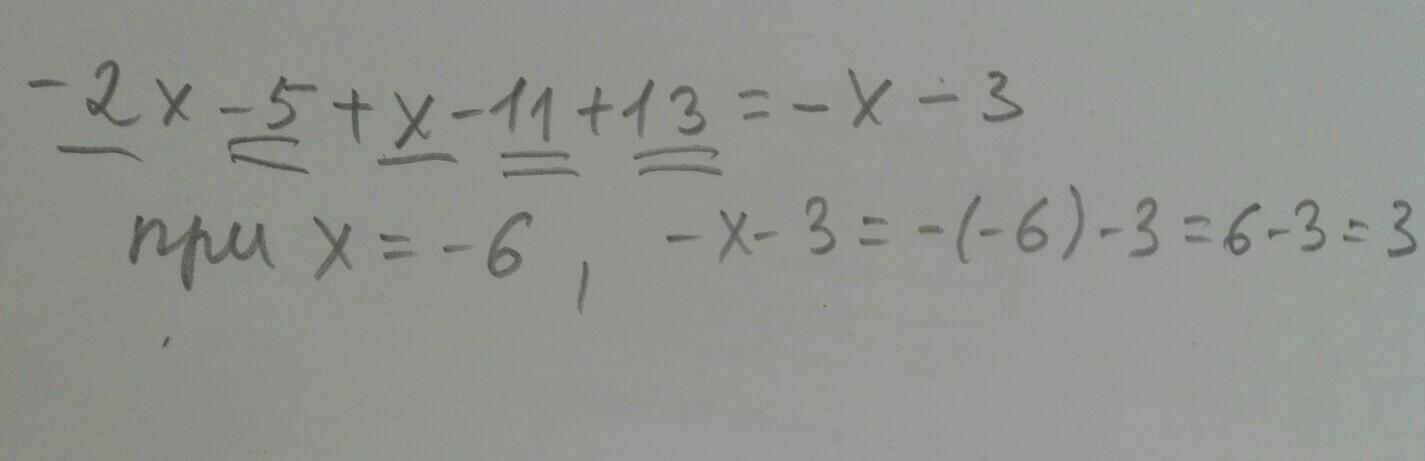 -2x-5+x-11+13=-x-3
при x=-6, -x-3=-(-6)-3=6-3=3